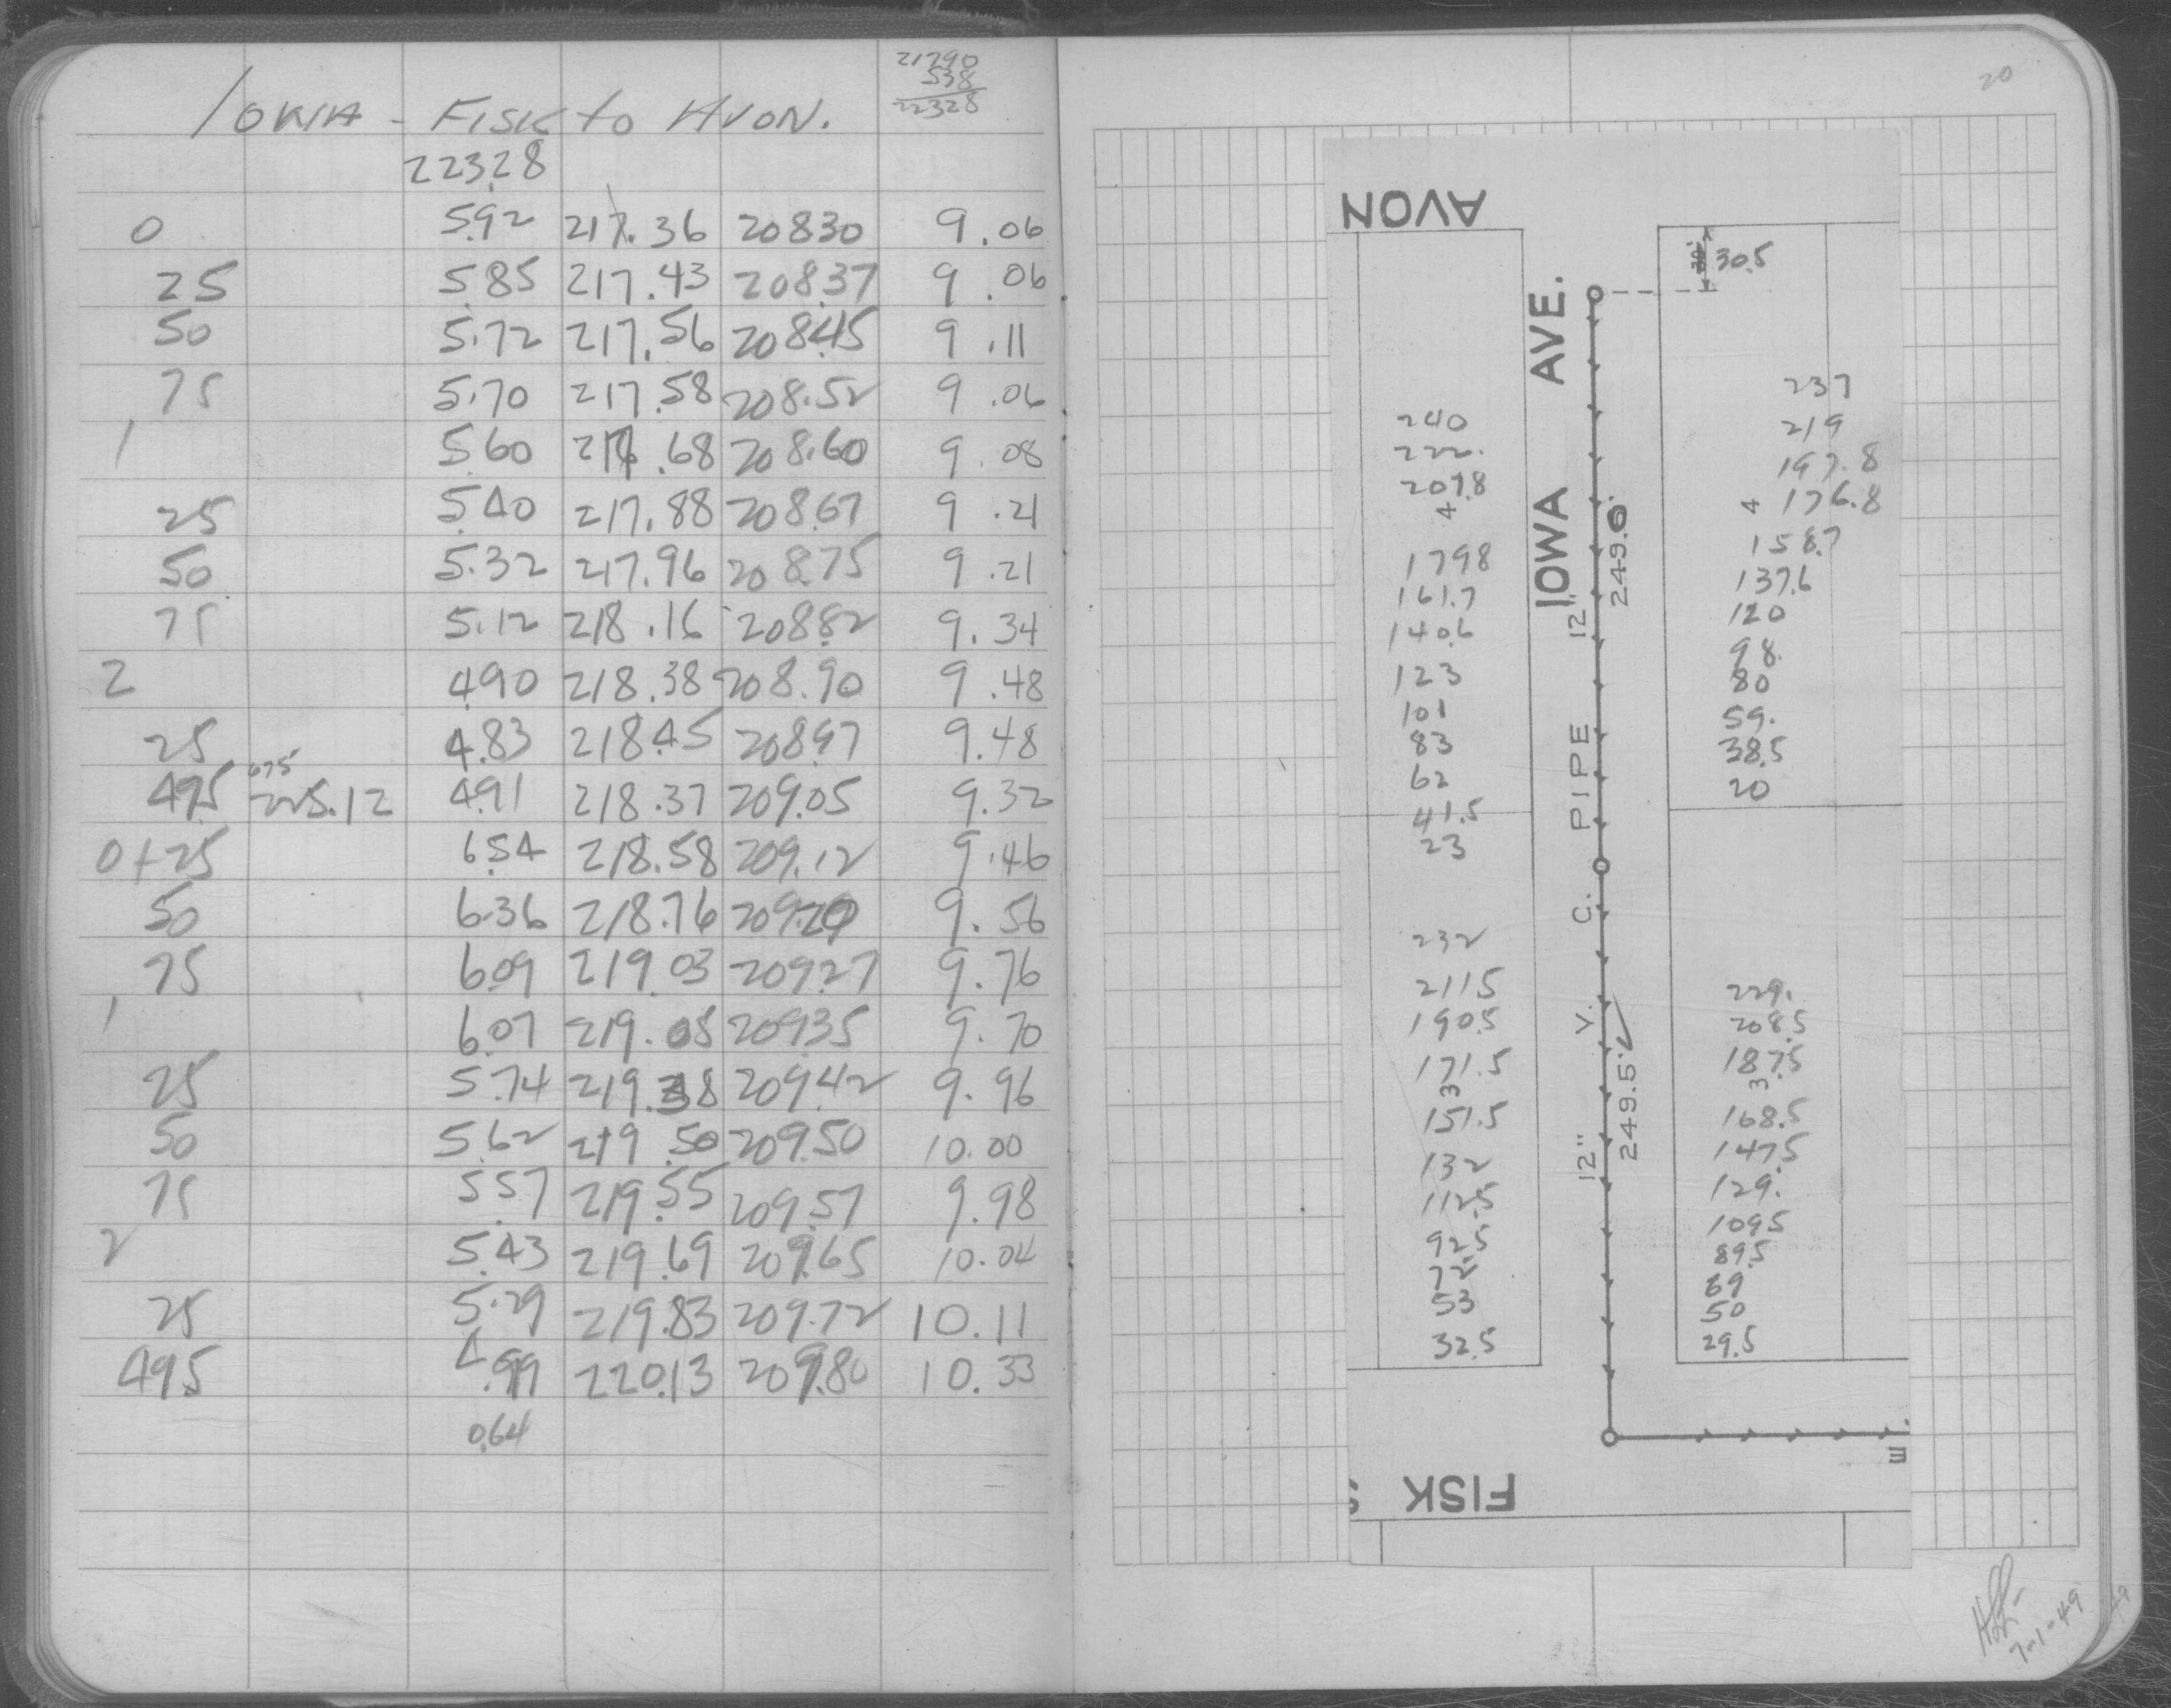 21790
538
22328
IOWA - FISK to AVON.
223.28
0 5.92 217.36 208.30 9.06
25 5.85 217.43 208.37 9.06
50 5.72 217.56 208.45 9.11
75 5.70 217.58 208.52 9.06
1 5.60 217.68 208.60 9.08
25 5.40 217.88 208.67 9.21
50 5.32 217.96 208.75 9.21
75 5.12 218.16 208.82 9.34
2 4.90 218.38 208.90 9.48
25 4.83 218.45 208.97 9.48
675
49.5 225.12 4.91 218.37 209.05 9.32
0+25 6.54 218.58 209.12 9.46
50 6.36 218.76 209.20 9.56
75 6.09 219.03 209.27 9.76
1 6.07 219.05 209.35 9.70
25 5.74 219.38 209.42 9.96
50 5.62 219.50 209.50 10.00
75 5.57 219.55 209.57 9.98
2 5.43 219.69 209.65 10.04
25 5.29 219.83 209.72 10.11
49.5 4.99 220.13 209.80 10.33
0.64
20
AVON
30.5
IOWA AVE.
249.6'
12" V. C. PIPE 12"
249.5'
240
222.
207.8
4
179.8
161.7
140.6
123
101
83
62
41.5
23
237
219
197.8
4 176.8
158.7
137.6
120
98.
80
59.
38.5
20
232
211.5
190.5
171.5
3
151.5
132
112.5
92.5
72
53
32.5
229.
208.5
187.5
3
168.5
147.5
129.
109.5
89.5
69
50
29.5
FISK S
E
7-1-49